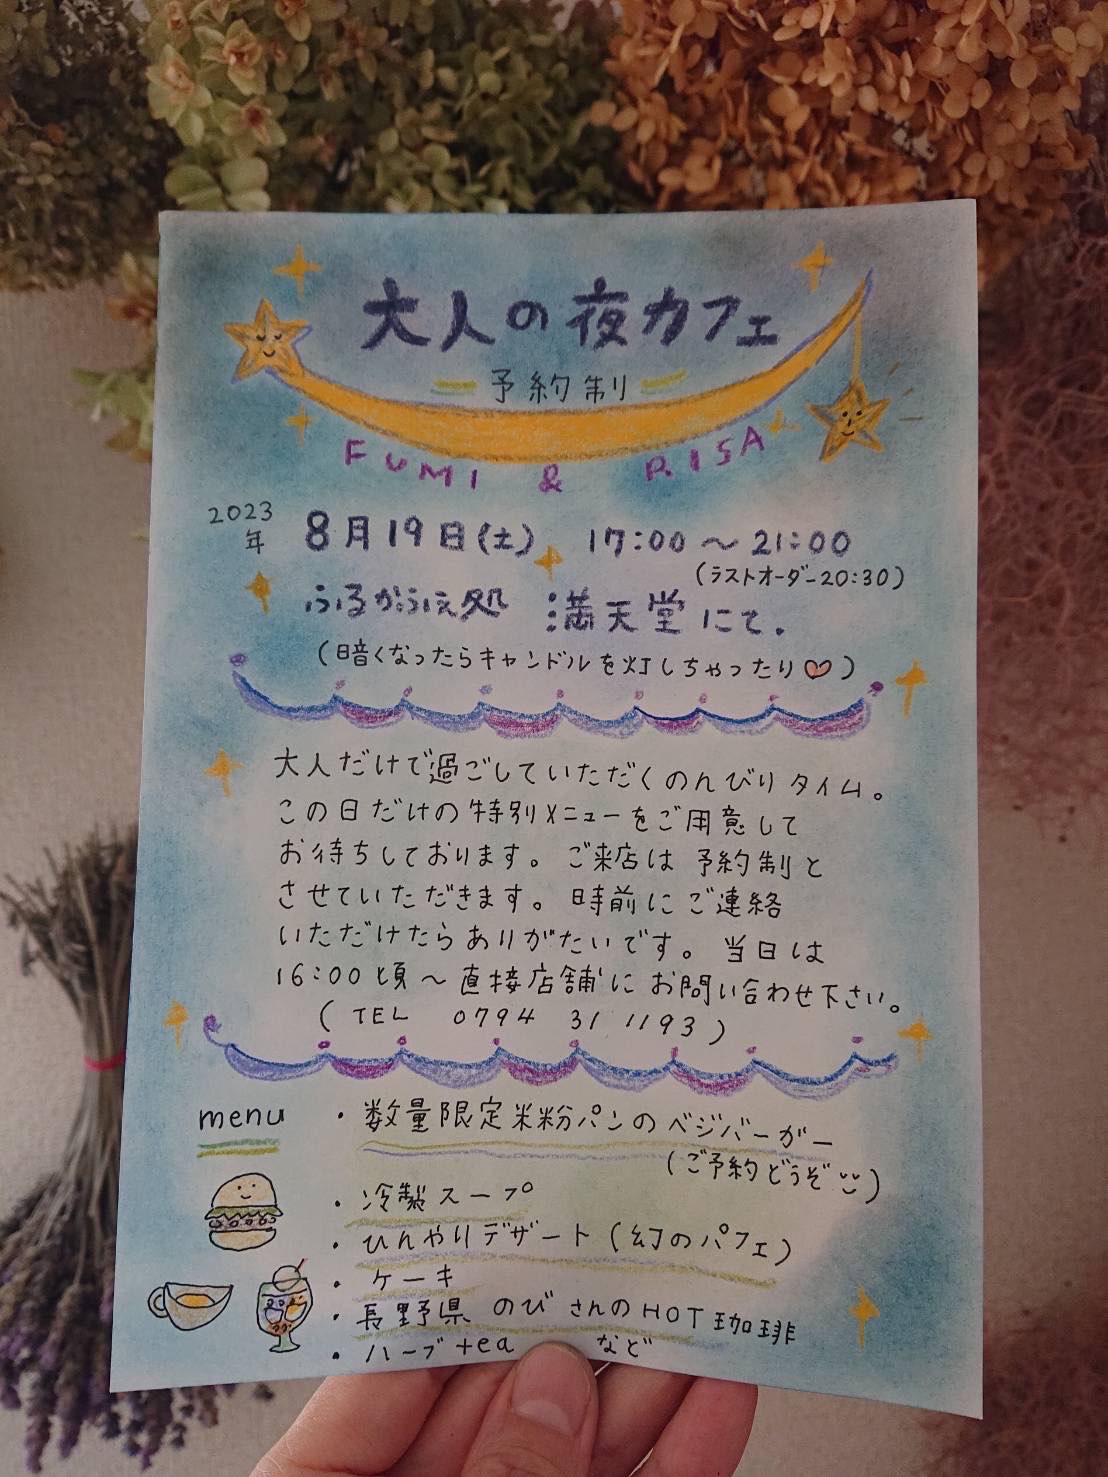 大人の夜カフェ
予約制
FUMI & RISA
2023年 8月19日(土) 17:00〜21:00
(ラストオーダー20:30)
ふるかふぇ処 満天堂にて.
(暗くなったらキャンドルを灯しちゃったり♡)
大人だけで過ごしていただくのんびりタイム。
この日だけの特別メニューをご用意して
お待ちしております。ご来店は予約制と
させていただきます。時前にご連絡
いただけたらありがたいです。当日は
16:00頃〜直接店舗にお問い合わせ下さい。
(TEL 0794 31 1193)
menu
・数量限定米粉パンのベジバーガー
(ご予約どうぞ)
・冷製スープ
・ひんやりデザート(幻のパフェ)
・ケーキ
・長野県 のびさんのHOT珈琲
・ハーブtea など